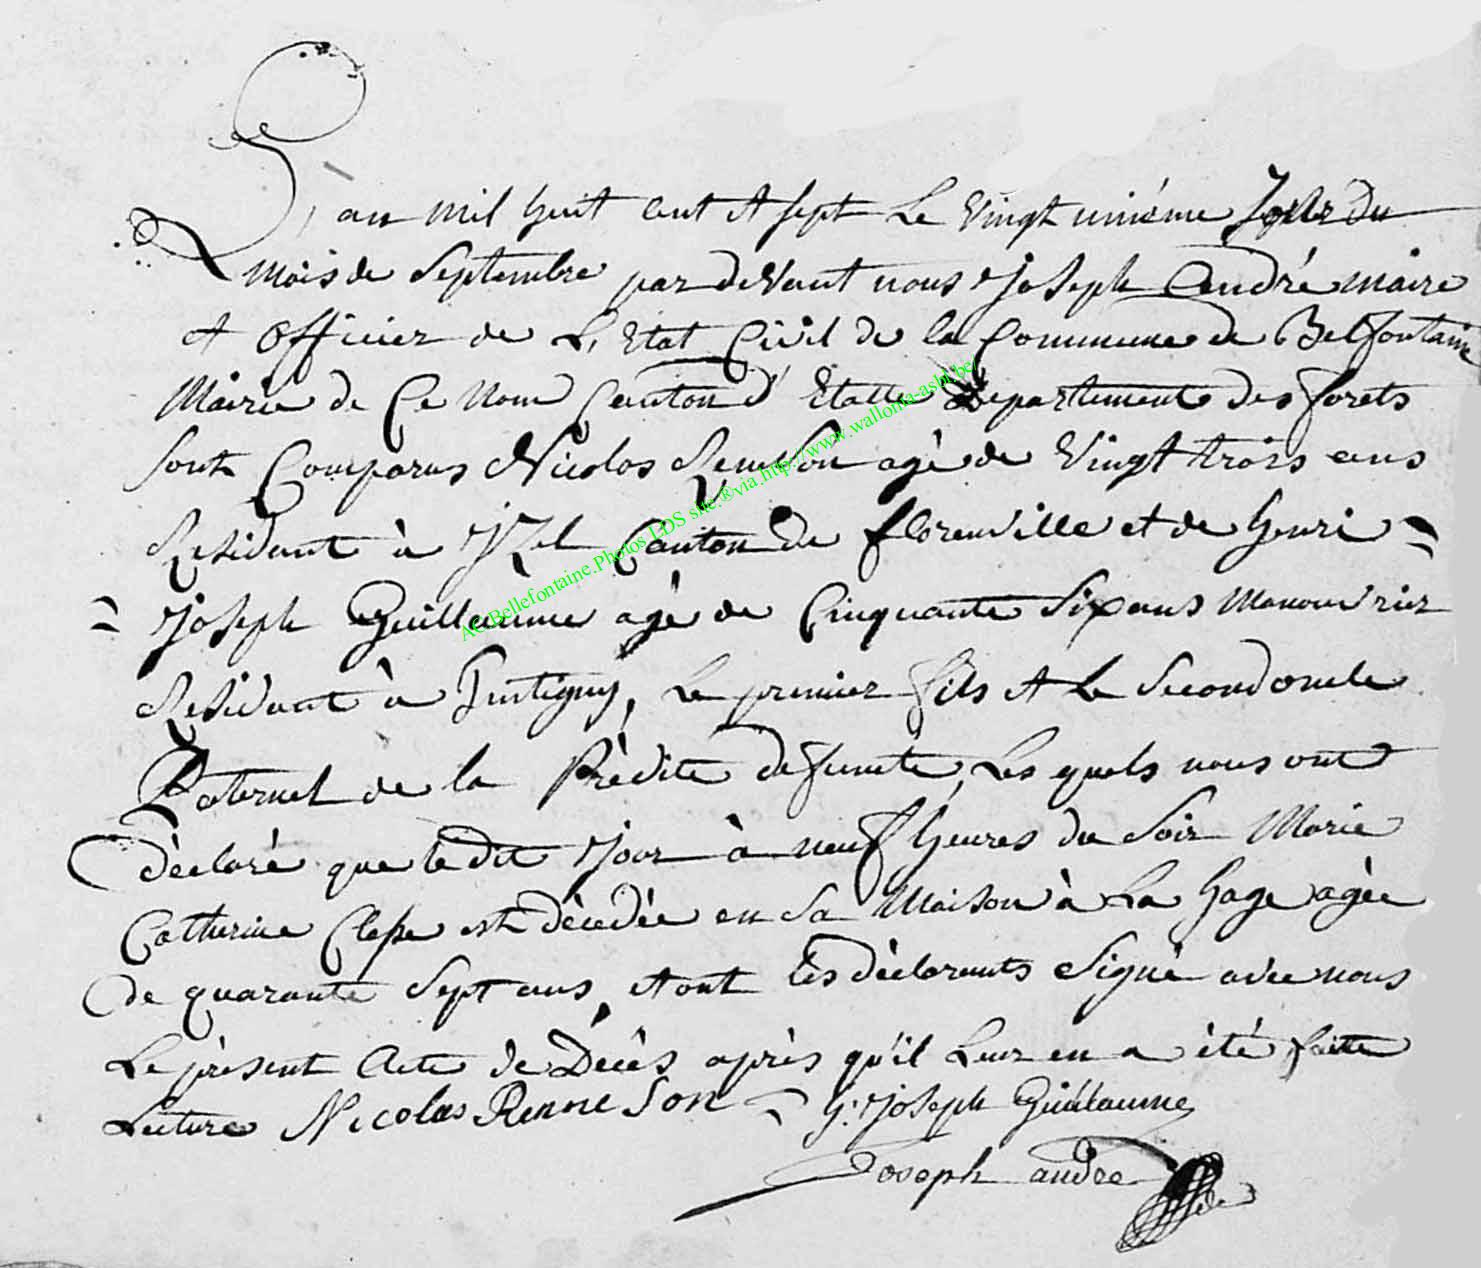 L'an mil huit cent et sept Le Vingt unième Jour du
mois de Septembre par devant nous Joseph André maire
et Officier de L'Etat Civil de la Commune de Belfontaine
Mairie de Ce Nom Canton d'Etalle Departement des forets
sont Comparus Nicolas Renson agé de Vingt trois ans
Residant à Izel Canton de florenville et de Henri =
= Joseph Guillaume agé de Cinquante Six ans Manouvrier
Residant à Tintigny, Le premier fils et le Second oncle
Paternel de la Prèdite defunte, Les quels nous ont
dèclaré que le dit Jour à neuf heures du Soir Marie
Catherine est dècedée en Sa Maison à La hage agèe
de quarante Sept ans, et ont les dèclarants Signé avec nous
Le prèsent Acte de Dècès après qu'il Leur en a été faitte
Lecture Nicolas Renne Son = h: Joseph Guillaume
Joseph andre
AC Bellefontaine.Photos LDS site.®via http://www.wallonia-asbl.be/